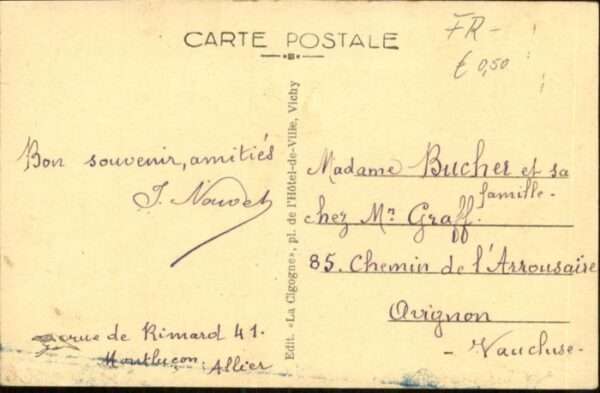 CARTE POSTALE
FR-
€ 0,50
Bon souvenir, amitiés
Edit. «La Cigogne», pl. de l'Hôtel-de-Ville, Vichy
Madame Bucher et sa
famille.
chez Mr Graff.
85. Chemin de l'Arrousaire
Avignon
- Vaucluse -
rue de Rimard 41.
Montluçon. Allier